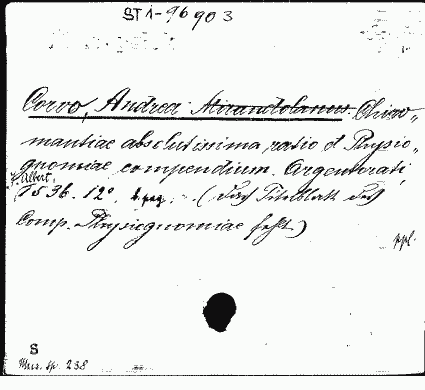 ST 1-96 903
Corvo, Andrea Mirandolanus. Chiro„
mantiae absolutissima ratio et Physio„
gnomiae compendium. Argentorati,
J. Albert.
1536. 12° (Das Titelblatt des
Comp. Physiognomiae fehlt)
ppl.
S
Mus. sp. 238